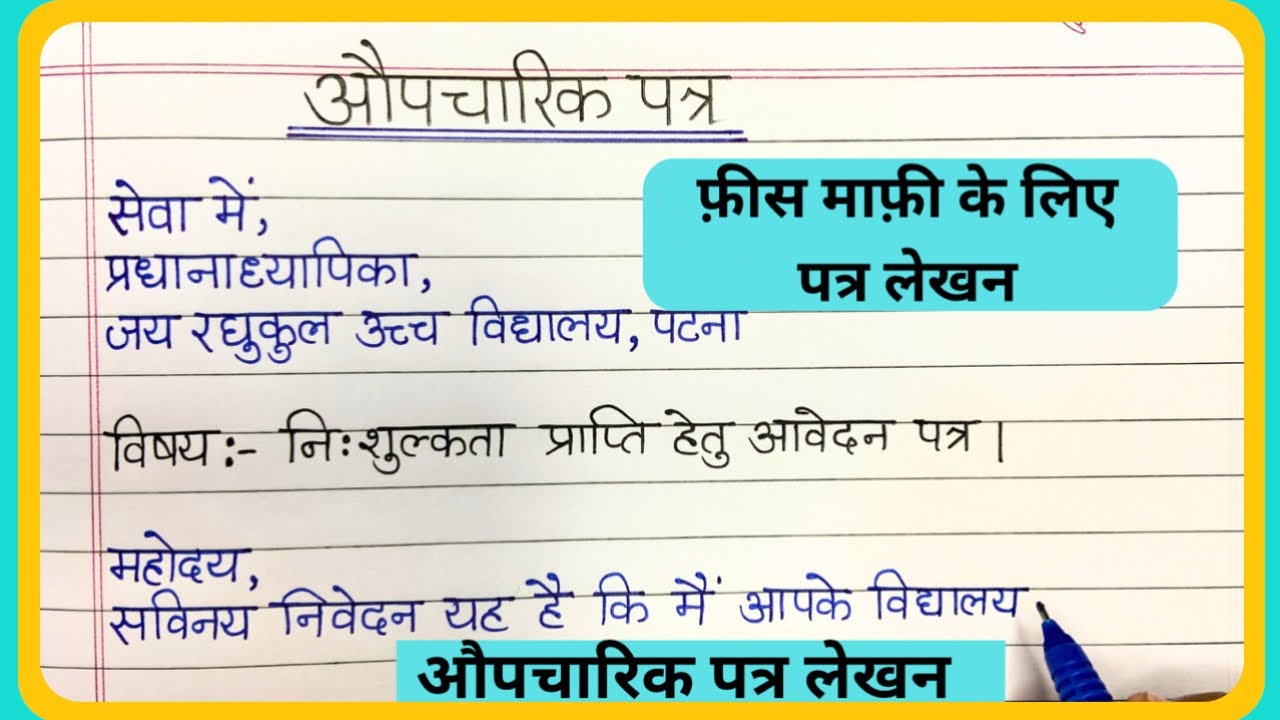 औपचारिक पत्र
फ़ीस माफ़ी के लिए
पत्र लेखन
सेवा में,
प्रधानाध्यापिका,
जय रघुकुल उच्च विद्यालय, पटना
विषय:- नि:शुल्कता प्राप्ति हेतु आवेदन पत्र।
महोदय,
सविनय निवेदन यह है कि मैं आपके विद्यालय
औपचारिक पत्र लेखन